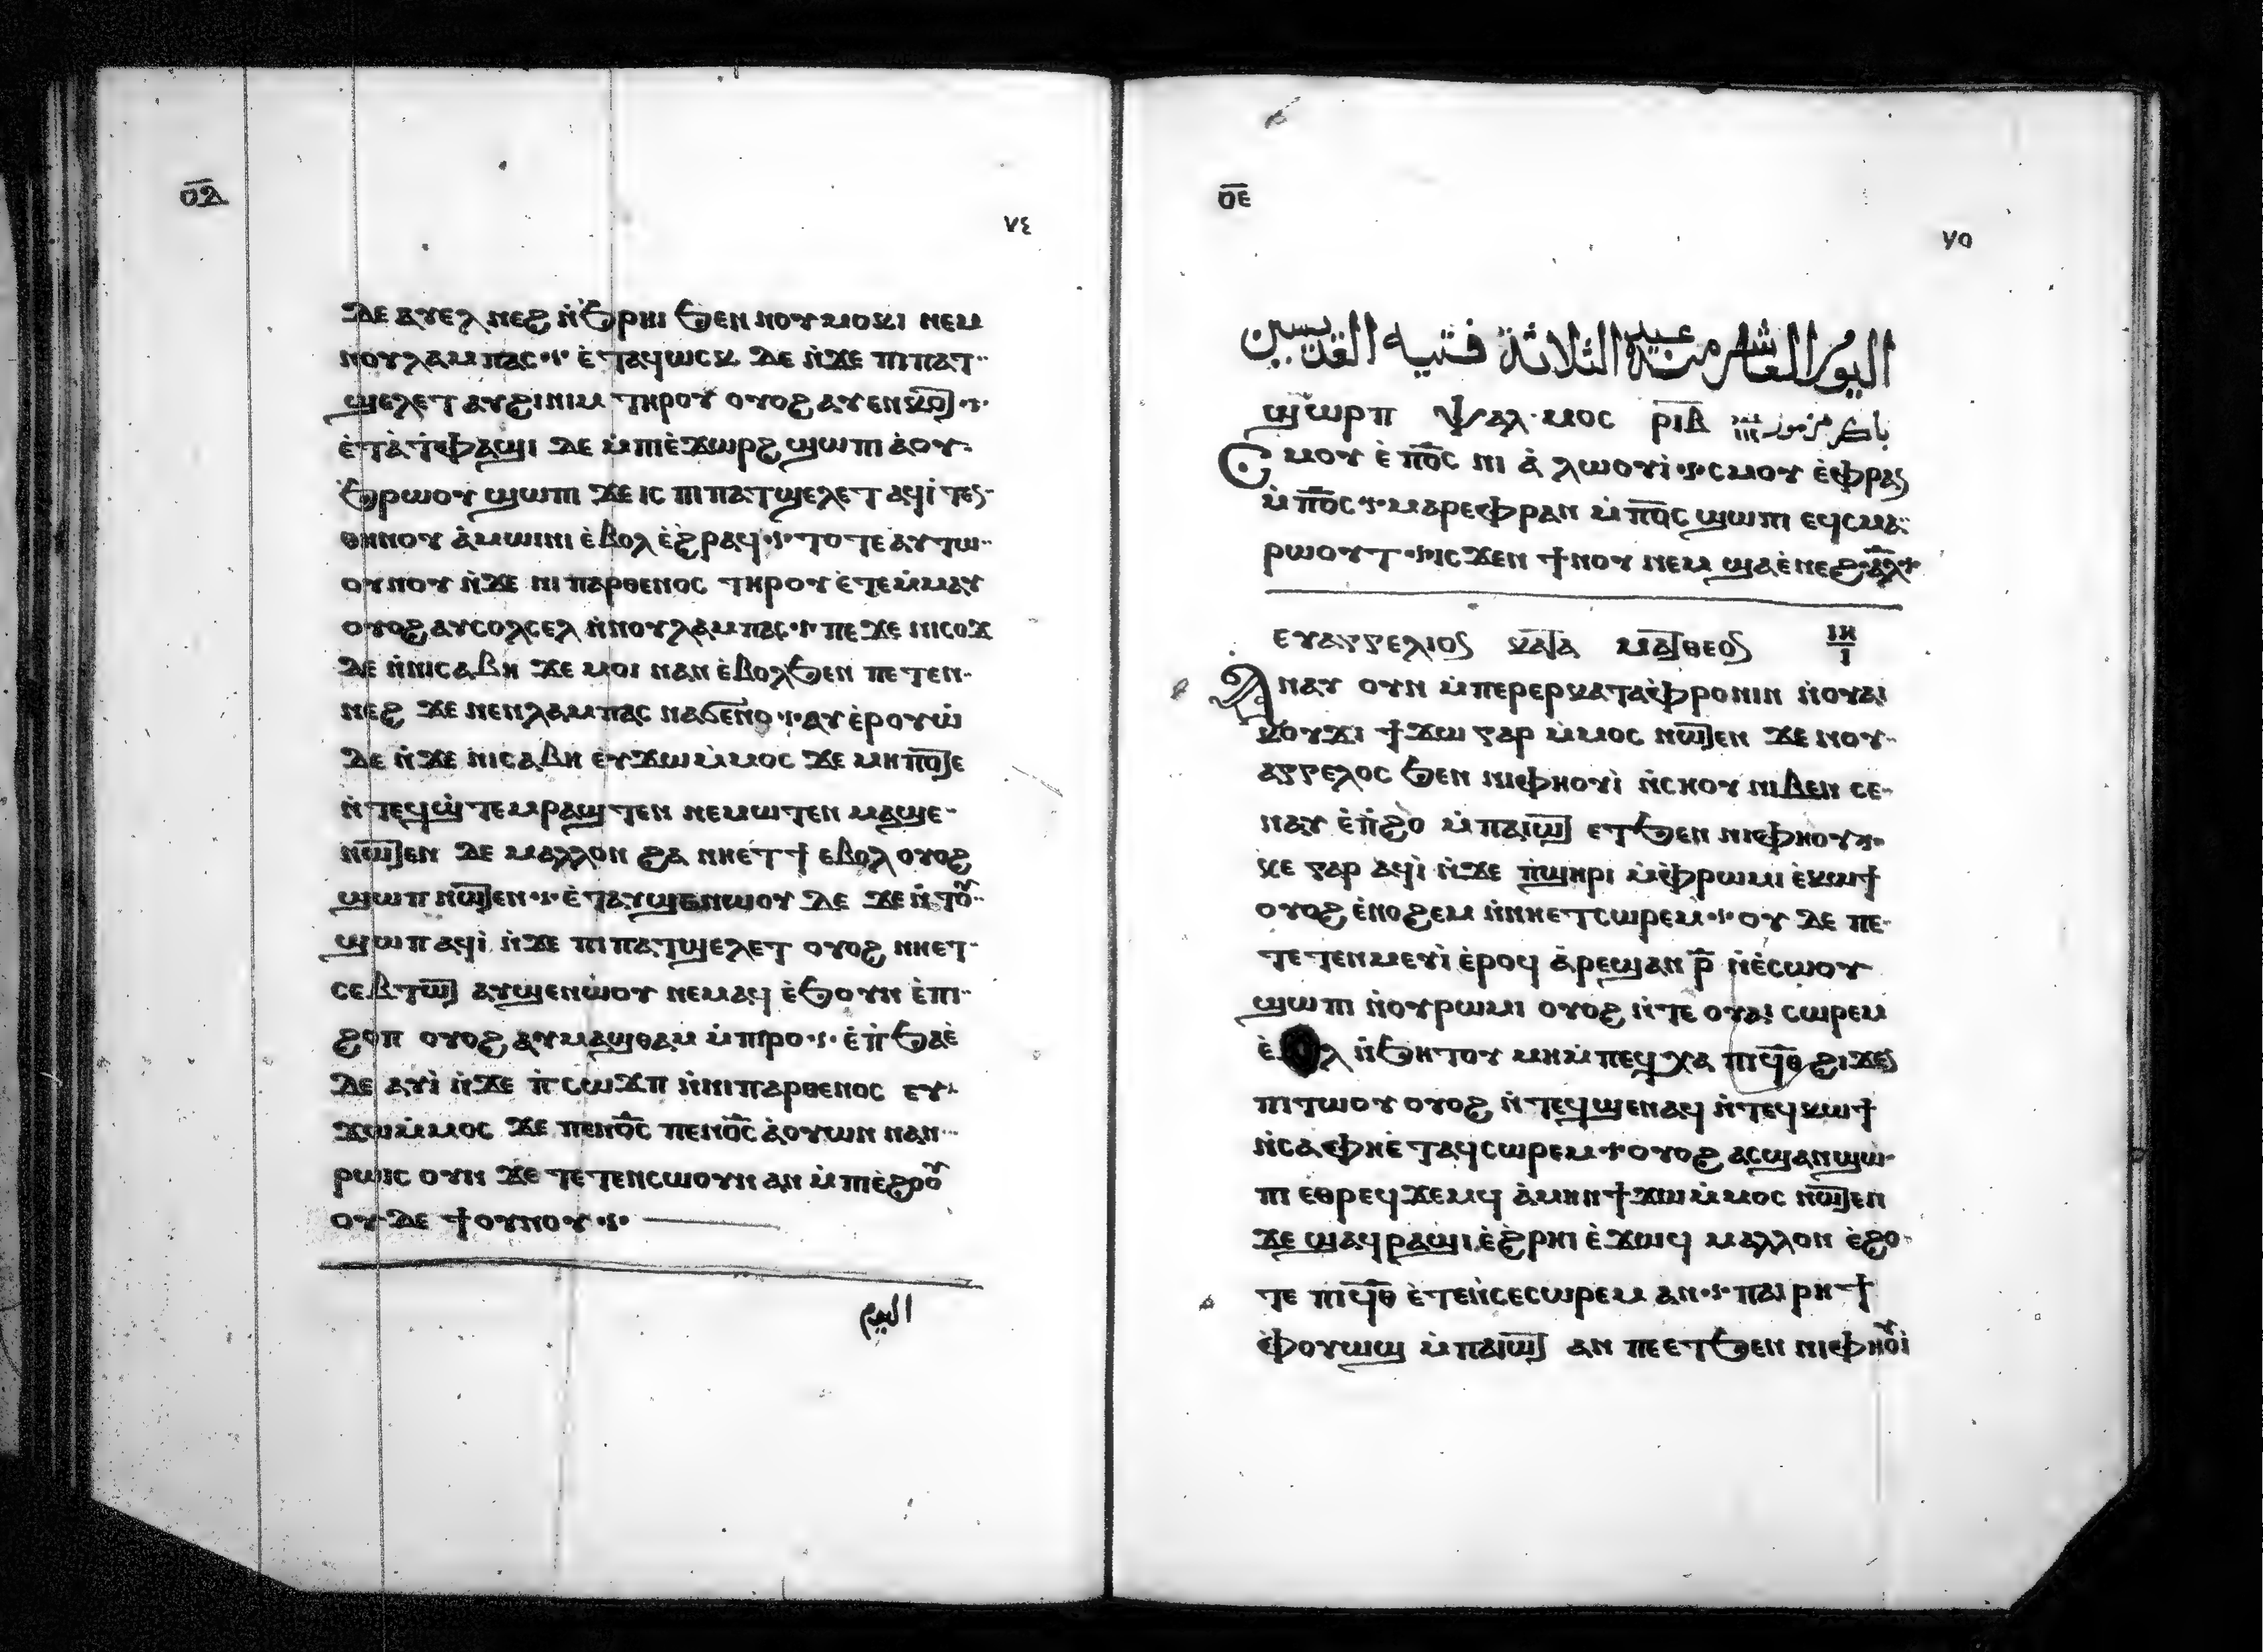 ⲟ̅ⲇ̅
٧٤
ⲇⲉ ⲁⲩⲉⲗ ⲛⲉϩ ⲛ̀ϧⲣⲏⲓ ϧⲉⲛ ⲛⲟⲩⲙⲟⲕⲓ ⲛⲉⲙ
ⲛⲟⲩⲗⲁⲙⲡⲁⲥ ⲉ̀ⲧⲁϥⲱⲥⲕ ⲇⲉ ⲛ̀ϫⲉ ⲡⲓⲡⲁⲧ
ϣⲉⲗⲉⲧ ⲁⲩϩⲓⲛⲓⲙ ⲧⲏⲣⲟⲩ ⲟⲩⲟϩ ⲁⲩⲉⲛⲕⲟⲧ
ⲉ̀ⲧⲁ̀ⲧ̀ⲫⲁϣⲓ ⲇⲉ ⲙ̀ⲡⲓⲉ̀ϫⲱⲣϩ ϣⲱⲡⲓ ⲁ̀ⲟⲩ
ϧⲣⲱⲟⲩ ϣⲱⲡⲓ ϫⲉ ⲓⲥ ⲡⲓⲡⲁⲧϣⲉⲗⲉⲧ ⲁϥⲓ̀ ⲧⲉⲛ
ⲑⲏⲛⲟⲩ ⲁ̀ⲙⲱⲓⲛⲓ ⲉ̀ⲃⲟⲗ ⲉ̀ϩⲣⲁϥ ⲧⲟⲧⲉ ⲁⲩⲧⲱ
ⲟⲩⲛⲟⲩ ⲛ̀ϫⲉ ⲛⲓ ⲡⲁⲣⲑⲉⲛⲟⲥ ⲧⲏⲣⲟⲩ ⲉ̀ⲧⲉⲙ̀ⲙⲁⲩ
ⲟⲩⲟϩ ⲁⲩⲥⲟⲗⲥⲉⲗ ⲛ̀ⲛⲟⲩⲗⲁⲙⲡⲁⲥ ⲡⲉ ϫⲉ ⲛⲓⲥⲟϫ
ⲇⲉ ⲛ̀ⲛⲓⲥⲁⲃⲏ ϫⲉ ⲙⲟⲓ ⲛⲁⲛ ⲉ̀ⲃⲟⲗϧⲉⲛ ⲡⲉ ⲧⲉⲛ
ⲛⲉϩ ϫⲉ ⲛⲉⲛⲗⲁⲙⲡⲁⲥ ⲛⲁϭⲉⲛⲟ ⲁⲩ ⲉ̀ⲣⲟⲩⲱ̀
ⲇⲉ ⲛ̀ϫⲉ ⲛⲓⲥⲁⲃⲏ ⲉⲩϫⲱⲙ̀ⲙⲟⲥ ϫⲉ ⲙⲏⲡⲟⲧⲉ
ⲛ̀ⲧⲉϥϣ̀ⲧⲉⲙⲣⲁϣⲧⲉⲛ ⲛⲉⲙⲱⲧⲉⲛ ⲙⲁϣⲉ
ⲛⲱⲧⲉⲛ ⲇⲉ ⲙⲁⲗⲗⲟⲛ ϩⲁ ⲛⲏⲉⲧϯ ⲉⲃⲟⲗ ⲟⲩⲟϩ
ϣⲱⲡ ⲛⲱⲧⲉⲛ ⲉ̀ⲧⲁⲩϣⲉⲛⲱⲟⲩ ⲇⲉ ϫⲉ ⲛ̀ⲧⲟⲩ
ϣⲱⲡ ⲁϥⲓ̀ ⲛ̀ϫⲉ ⲡⲓ ⲡⲁⲧϣⲉⲗⲉⲧ ⲟⲩⲟϩ ⲛⲏⲉⲧ
ⲥⲉⲃⲧⲱⲧ ⲁⲩϣⲉⲛⲱ̀ⲟⲩ ⲛⲉⲙⲁϥ ⲉ̀ϧⲟⲩⲛ ⲉ̀ⲡⲓ
ϩⲟⲡ ⲟⲩⲟϩ ⲁⲩⲙⲁϣⲑⲁⲙ ⲙ̀ⲡⲓⲣⲟ ⲉ̀ⲡ̀ϧⲁⲉ̀
ⲇⲉ ⲁⲩⲓ̀ ⲛ̀ϫⲉ ⲡ̀ⲥⲱϫⲡ ⲛ̀ⲛⲓⲡⲁⲣⲑⲉⲛⲟⲥ ⲉⲩ
ϫⲱⲙ̀ⲙⲟⲥ ϫⲉ ⲡⲉⲛⲟ̅ⲥ̅ ⲡⲉⲛⲟ̅ⲥ̅ ⲁ̀ⲟⲩⲱⲛ ⲛⲁⲛ
ⲣⲱⲓⲥ ⲟⲩⲛ ϫⲉ ⲧⲉ ⲧⲉⲛⲥⲱⲟⲩⲛ ⲁⲛ ⲙ̀ⲡⲓⲉ̀ϩⲟⲟⲩ
ⲟⲩ ⲇⲉ ϯⲟⲩⲛⲟⲩ
اليوم
ⲟ̅ⲉ̅
٧٥
اليوم العاشر من عيد الثلاثة فتيه القديسين
ϣⲱⲣⲡ ⲯⲁⲗⲙⲟⲥ ⲣ̅ⲓ̅ⲃ̅ باكر مزمور
ⲥⲙⲟⲩ ⲉ̀ ⲡ̅ⲟ̅ⲥ̅ ⲛⲓ ⲁ̀ⲗⲱⲟⲩⲓ̀ ⲥⲙⲟⲩ ⲉ̀ⲫⲣⲁⲛ
ⲙ̀ⲡ̅ⲟ̅ⲥ̅ ⲙⲁⲣⲉⲫⲣⲁⲛ ⲙ̀ⲡ̅ⲟ̅ⲥ̅ ϣⲱⲡⲓ ⲉϥⲥⲙⲁ
ⲣⲱⲟⲩⲧ ⲓⲥϫⲉⲛ ϯⲛⲟⲩ ⲛⲉⲙ ϣⲁⲉ̀ⲛⲉϩ ⲁ̅ⲗ̅
ⲉⲩⲁⲅⲅⲉⲗⲓⲟⲛ ⲕⲁⲧⲁ ⲙⲁⲧⲑⲉⲟⲛ ⲓⲏ ⲓ
ⲁⲛⲁⲩ ⲟⲩⲛ ⲙ̀ⲡⲉⲣⲉⲣⲕⲁⲧⲁⲫⲣⲟⲛⲓⲛ ⲛ̀ⲟⲩⲁⲓ
ⲕⲟⲩϫⲓ ϯϫⲱ ⲅⲁⲣ ⲙ̀ⲙⲟⲥ ⲛⲱⲧⲉⲛ ϫⲉ ⲛⲟⲩ
ⲁⲅⲅⲉⲗⲟⲥ ϧⲉⲛ ⲛⲓⲫⲏⲟⲩⲓ̀ ⲛ̀ⲥⲏⲟⲩ ⲛⲓⲃⲉⲛ ⲥⲉ
ⲛⲁⲩ ⲉ̀ⲡ̀ϩⲟ ⲙ̀ⲡⲁⲓⲱⲧ ⲉⲧϧⲉⲛ ⲛⲓⲫⲏⲟⲩⲓ
ⲕⲉ ⲅⲁⲣ ⲁϥⲓ̀ ⲛ̀ϫⲉ ⲡ̀ϣⲏⲣⲓ ⲙ̀ⲫⲣⲱⲙⲓ ⲉ̀ⲕⲱϯ
ⲟⲩⲟϩ ⲉ̀ⲛⲟϩⲉⲙ ⲛ̀ⲛⲏⲉⲧⲥⲱⲣⲉⲙ ⲟⲩ ⲇⲉ ⲡⲉ
ⲧⲉ ⲧⲉⲛⲙⲉⲩⲓ̀ ⲉ̀ⲣⲟϥ ⲁ̀ⲣⲉϣⲁⲛ ⲣ̅ ⲛ̀ⲉ̀ⲥⲱⲟⲩ
ϣⲱⲡⲓ ⲛ̀ⲟⲩⲣⲱⲙⲓ ⲟⲩⲟϩ ⲛ̀ⲧⲉ ⲟⲩⲁⲓ ⲥⲱⲣⲉⲙ
ⲉ̀ⲃⲟⲗ ⲛ̀ϧⲏⲧⲟⲩ ⲙⲏⲙ̀ⲡⲉϥⲭⲁ ⲡⲓϥ̅ⲑ̅ ϩⲓϫⲉⲛ
ⲡⲓⲧⲱⲟⲩ ⲟⲩⲟϩ ⲛ̀ⲧⲉϥϣⲉⲛⲁϥ ⲛ̀ⲧⲉϥⲕⲱϯ
ⲛ̀ⲥⲁ ⲫⲏⲉ̀ⲧⲁϥⲥⲱⲣⲉⲙ ⲟⲩⲟϩ ⲁⲥϣⲁⲛϣⲱ
ⲡⲓ ⲉⲑⲣⲉϥϫⲉⲙϥ ⲁ̀ⲙⲏⲛ ϯϫⲱⲙ̀ⲙⲟⲥ ⲛⲱⲧⲉⲛ
ϫⲉ ϣⲁϥⲣⲁϣⲓ ⲉ̀ϩⲣⲏⲓ ⲉ̀ϫⲱϥ ⲙⲁⲗⲗⲟⲛ ⲉ̀ϩⲟ
ⲧⲉ ⲡⲓϥ̅ⲑ̅ ⲉ̀ⲧⲉⲛ̀ⲥⲉⲥⲱⲣⲉⲙ ⲁⲛ ⲡⲁⲓ ⲣⲏϯ
ⲫ̀ⲟⲩⲱϣ ⲙ̀ⲡⲁⲓⲱⲧ ⲁⲛ ⲡⲉ ⲉⲧϧⲉⲛ ⲛⲓⲫⲏⲟⲩⲓ̀